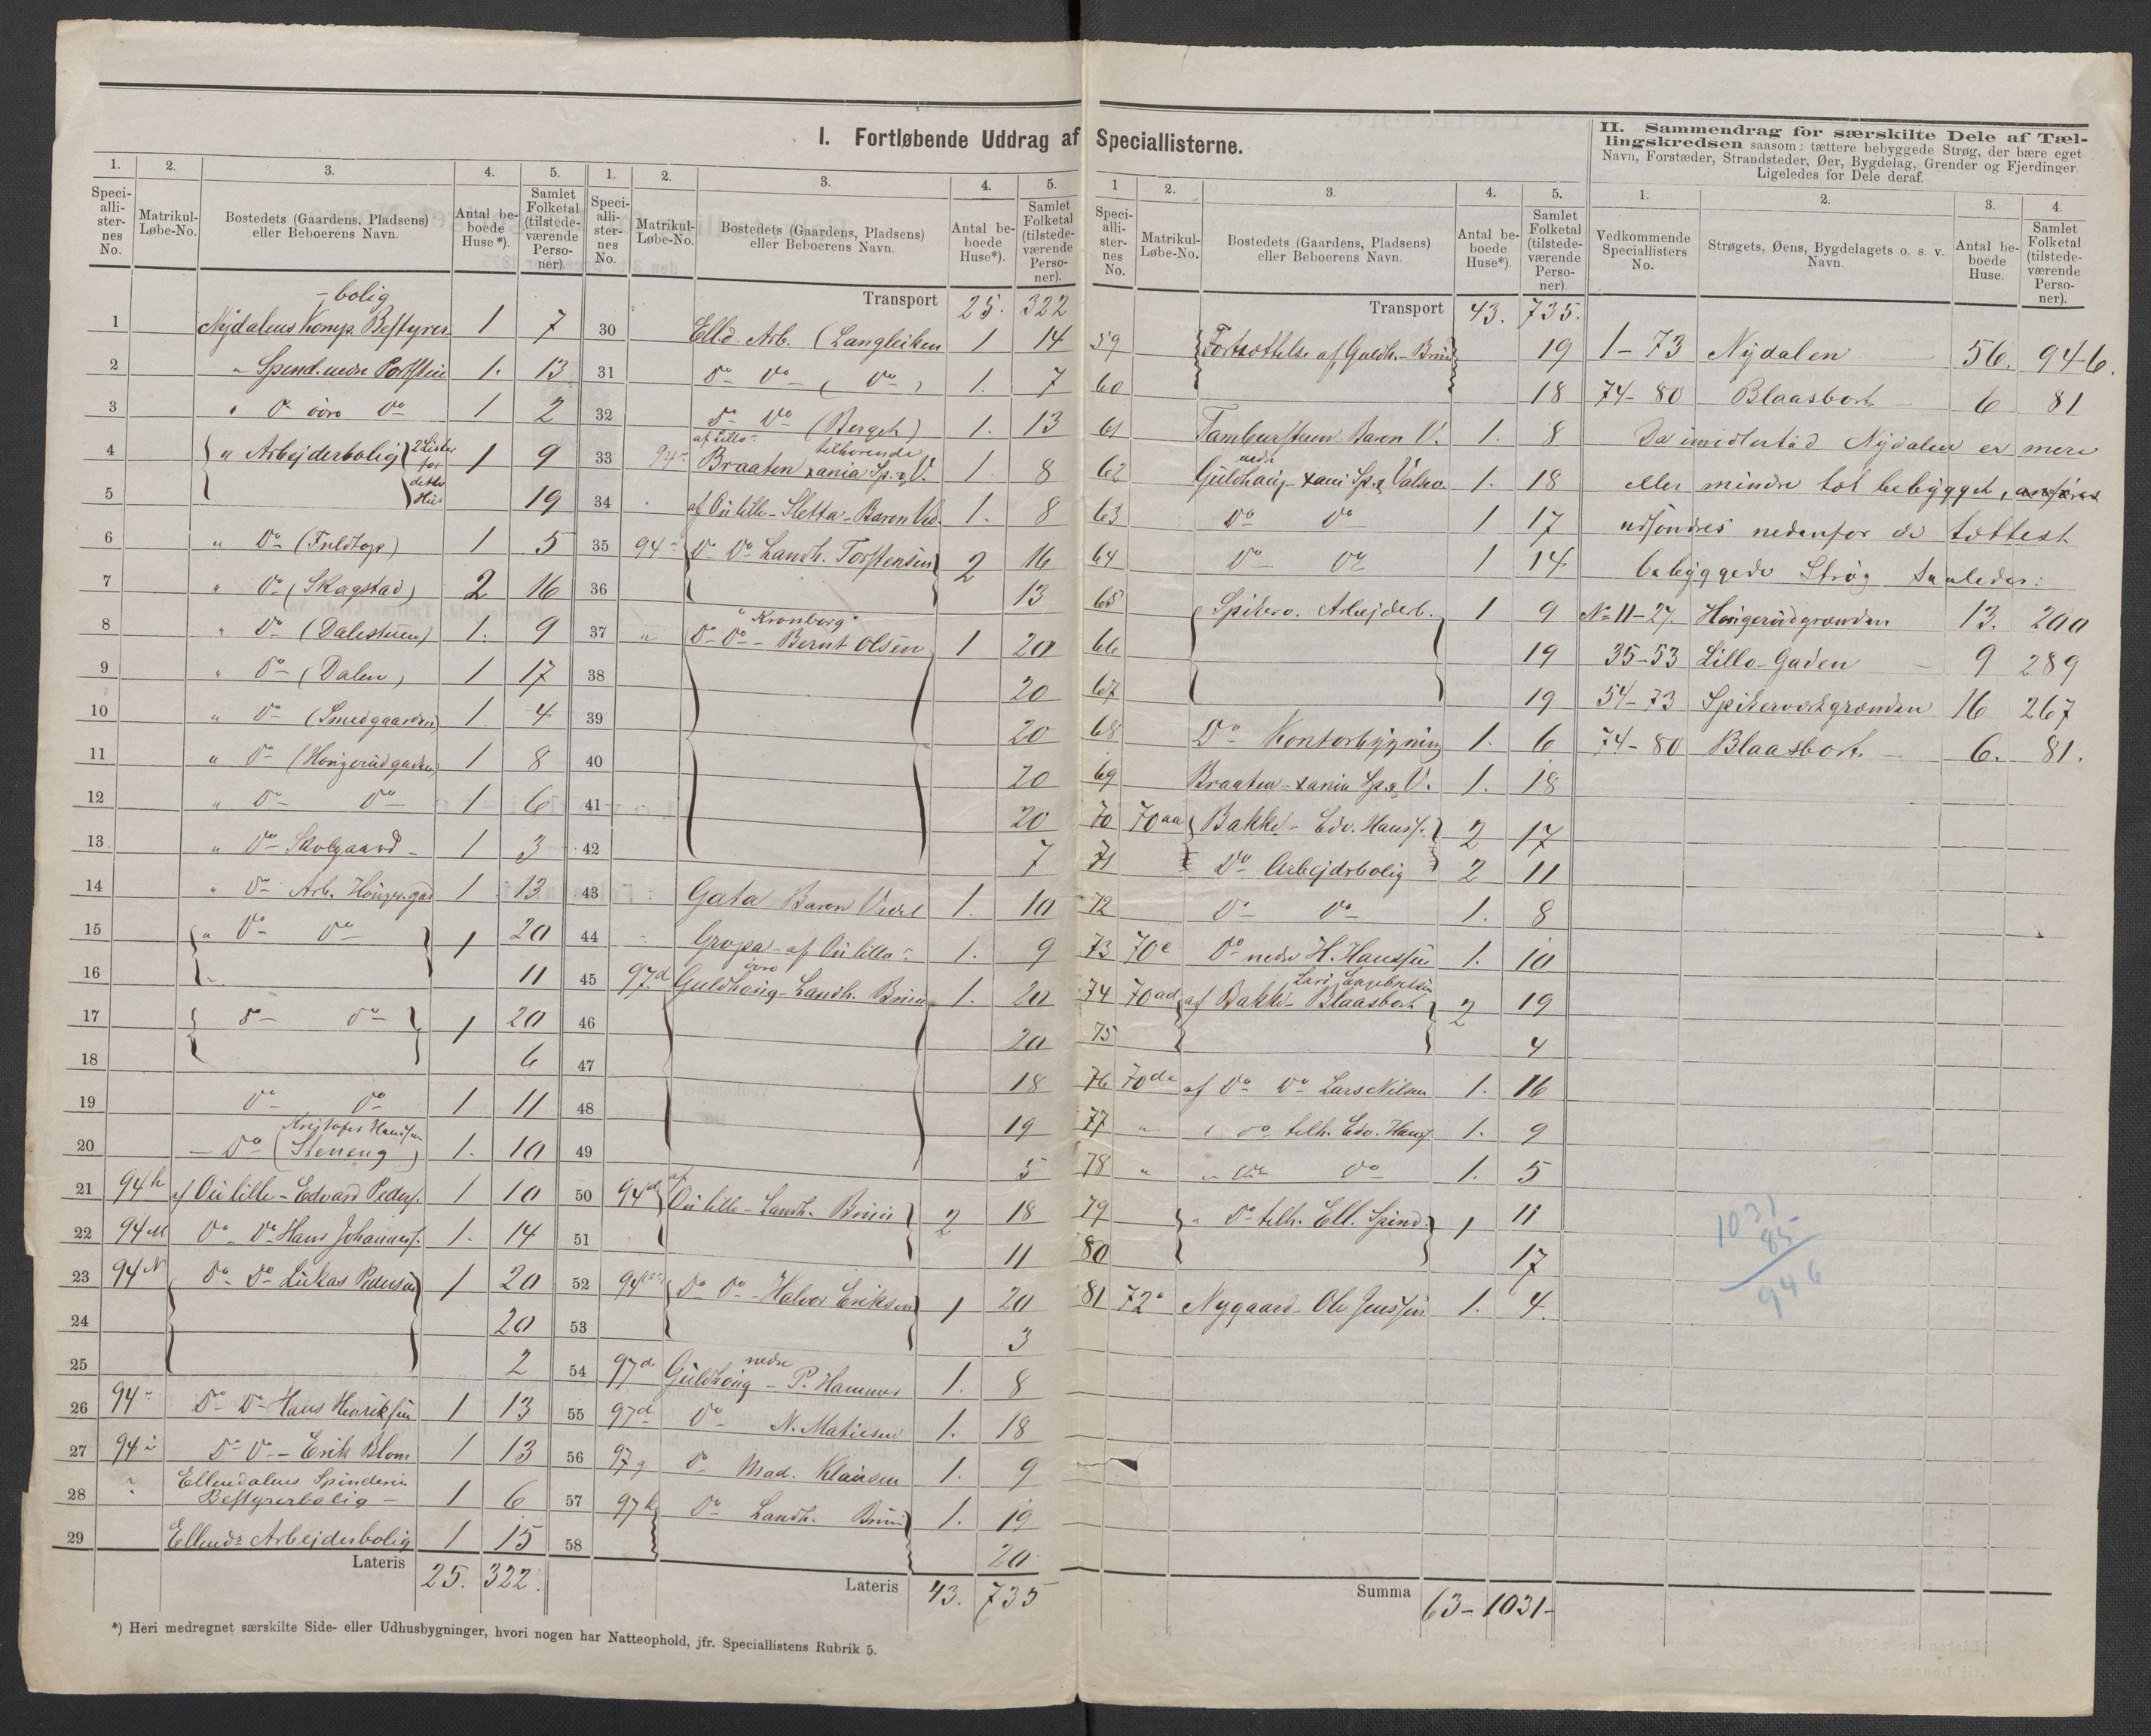 I. Fortløbende Uddrag af Speciallisterne.
II. Sammendrag for særskilte Dele af Tæl-
lingskredsen saasom: tættere bebyggede Strøg, der bære eget
Navn, Forstæder, Strandsteder, Øer, Bygdelag, Grender og Fjerdinger.
Ligeledes for Dele deraf.
1. Speciallisternes No.
2. Matrikul-Løbe-No.
3. Bostedets (Gaardens, Pladsens) eller Beboerens Navn.
4. Antal beboede Huse*).
5. Samlet Folketal (tilstedeværende Personer).
1 Nydalens Komp. Bestyrer-bolig 1 7
2 " Spind. nedre Portstue 1. 13
3 " Do øvre Do 1 2
4 " Arbejderbolig 2 Lister for dette Hus 1 9
5 19
6 " Do 1 5
7 " Do (Skagstad) 2 16
8 " Do (Dalestuen) 1. 9
9 " Do (Dalen) 1 17
10 " Do (Smedgaarden) 1 4
11 " Do (Hongerudgaden) 1 8
12 " Do Do 1 6
13 " Do Skolgaard - 1 3
14 " Do Arb. Honger.gad 1 13
15 " Do Do 1 20
16 11
17 Do Do 1 20
18 6
19 Do Do 1 11
20 - Do (Steneng) Kristofer Hanssen 1. 10
21 94h af Ou lille - Edvard Peders. 1 10
22 94M Do Do Hans Johanness. 1. 14
23 94N Do Do Lukas Pedersen 1 20
24 20
25 2
26 94 Do Do Hans Henriksen 1 13
27 94i Do Do - Erik Blom 1 13
28 Ellendalens Spinderi Bestyrerbolig - 1 6
29 Ellends Arbejderbolig 1 15
Lateris 25. 322.
1. Speciallisternes No.
2. Matrikul-Løbe-No.
3. Bostedets (Gaardens, Pladsens) eller Beboerens Navn.
4. Antal beboede Huse*).
5. Samlet Folketal (tilstedeværende Personer).
Transport 25. 322
30 Elld. Arb. (Langleiken 1 14
31 Do Do (Do) 1. 7
32 Do Do (Berget) 1. 13
33 94 Braaten af Lille tilhørende xania Sp. & V. 1. 8
34 af Ou lille - Sletta - Baron Wed. 1. 8
35 94 Do Do Landh. Torstensen 2 16
36 13
37 " Do Do "Kronborg" - Bernt Olsen 1 20
38 20
39 20
40 20
41 20
42 7
43 Gata Baron Wedel 1. 10
44 Gropa - af Ou lille 1. 9
45 97d Guldhoug øvre - Landh. Bruun 1. 20
46 20
47 18
48 19
49 5
50 94d af Ou lille - Landh. Bruun 2 18
51 11
52 94 Do Do - Halvor Eriksen 1 20
53 3
54 97d Guldhoug nedre - P. Hammer 1. 8
55 97d Do N. Matiesen 1. 18
56 97g Do Mad. Klausen 1. 9
57 97h Do Landh. Bruun 1. 19
58 20
Lateris 43. 735
1 Speciallisternes No.
2. Matrikul-Løbe-No.
3. Bostedets (Gaardens, Pladsens) eller Beboerens Navn.
4. Antal beboede Huse*).
5. Samlet Folketal (tilstedeværende Personer).
Transport 43. 735.
59 Fortsættelse af Guldh. - Bruun 19
60 18
61 Tamburstuen Baron V. 1. 8
62 Guldhoug nedre - xani Sp. & Valsev. 1. 18
63 Do Do 1 17
64 Do Do 1 14
65 Spikerv. Arbejderb. 1 9
66 19
67 19
68 Do Kontorbygning 1. 6
69 Braaten - xania Sp. & V. 1. 18
70 70aa Bakke - Edv. Hanss. 2 17
71 Do Arbejdsbolig 2 11
72 Do Do 1. 8
73 70e Do nedre H. Hanssen 1. 10
74 70ad af Bakke - Blaasbort 2 19
75 4
76 70de af Do Do Lars Nilsen 1. 16
77 " " Do tilh. Edv. Hans. 1. 9
78 " " Do Do 1. 5
79 " Do tilh. Ell. Spind. 1 11
80 17
81 72 Nygaard - Ole Jenssen 1. 4.
Summa 63 - 1031 -
1. Vedkommende Speciallisters No.
2. Strøgets, Øens, Bygdelagets o. s. v. Navn.
3. Antal beboede Huse.
4. Samlet Folketal (tilstedeværende Personer).
1-73 Nydalen 56. 946.
74-80 Blaasbort 6 81
Da imidlertid Nydalen er mere
eller mindre tæt bebygget, anføres
udsondres nedenfor de tættest
bebyggede Strøg saaledes:
No 11-27. Hongerudgrænden 13. 200
35-53 Lillo-Gaden 9 289
54-73 Spikerverkgrænden 16 267
74-80 Blaasbort 6. 81.
1031
85
946
*) Heri medregnet særskilte Side- eller Udhusbygninger, hvori nogen har Natteophold, jfr. Speciallistens Rubrik 5.